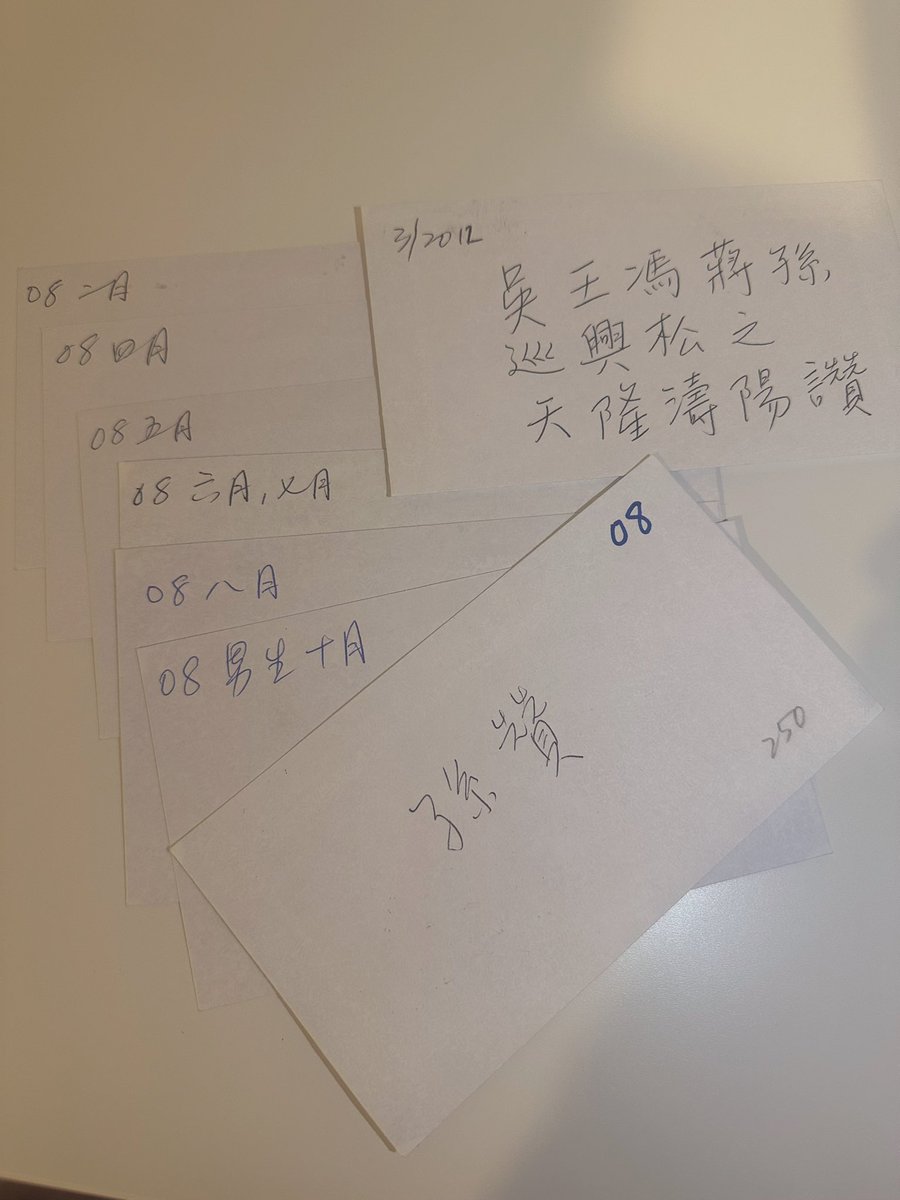 08 二月
08 四月
08 五月
08 六月,七月
08 八月
08 男生十月
3/2012
吳 王 馮 蔣 孫
巡 興 松 之
天 隆 濤 陽 讚
08
孫 贊
250